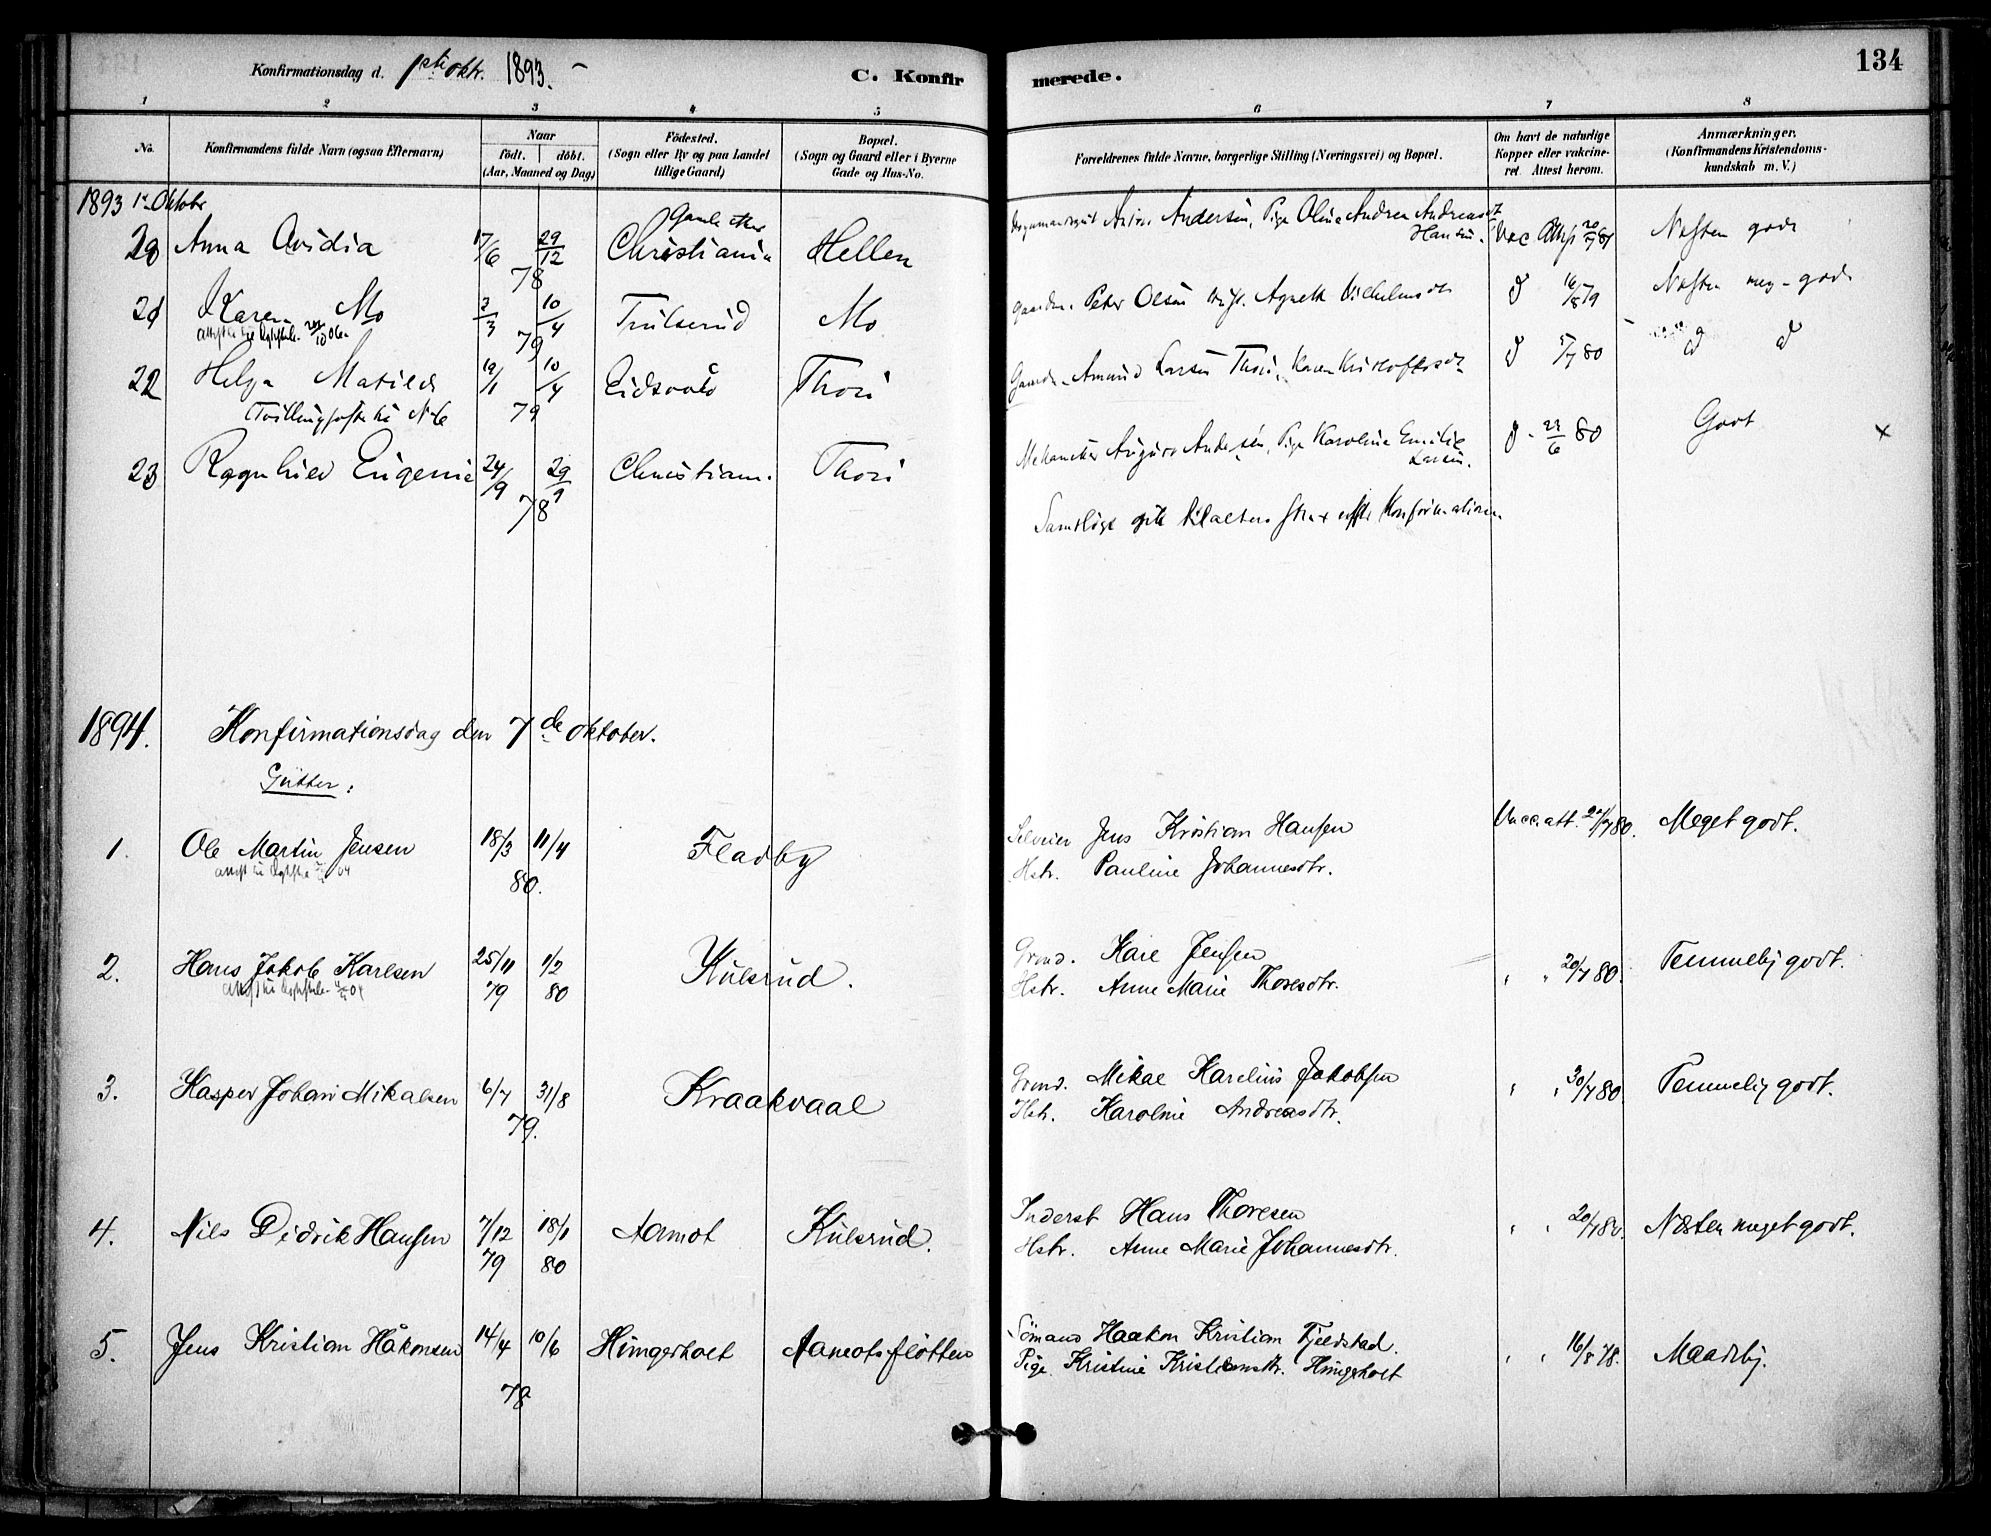 Konfirmationsdag d. 1ste oktr. 1893.
C. Konfirmerede.
134
1 2 3 4 5 6 7 8
No.
Konfirmandens fulde Navn (ogsaa Efternavn)
Naar
födt. döbt.
(Aar, Maaned og Dag)
Födested.
(Sogn eller By og paa Landet
tillige Gaard)
Bopæl.
(Sogn og Gaard eller i Byerne
Gade og Hus-No.
Forældrenes fulde Navne, borgerlige Stilling (Næringsvei) og Bopæl.
Om havt de naturlige
Kopper eller vakcine-
ret. Attest herom.
Anmærkninger.
(Konfirmandens Kristendoms-
kundskab m. V.)
1893 1ste Oktobr
20 Anna Ovidia 17/6 29/12 78 Gamle Aker Christiania Hellen Andersen, Pige Olina Andrea Andreasdt Hansen Vac. Næsten godt
21 Karen Mo 2/3 10/4 79 Trulserud Mo Gaardm. Peter Olsen Agnethe Vilhelmsdt 16/8 79 Næsten meg. godt
22 Helga Matilde 19/1 10/4 79 Eidsvold Thori Gaardm. Amund Larsen Thori, Karen Kristoffersdt 5/7 80 d d
Tvillingsøster til N 6
23 Ragnhild Eugenie 24/9 29/9 78 Christiania. Thori August Andersen, Pige Karoline Emilie Larsen. 23/6 80 Godt x
Samtlige gik til alters strax efter Konfirmationen
1894. Konfirmationsdag den 7de oktober.
Gutter:
1. Ole Martin Jensen 18/3 11/4 80. Fladby Selveier Jens Kristian Hansen Vacc. att. 20/7 80. Meget godt.
Hstr. Pauline Johannesdtr.
2. Hans Jakob Karlsen 25/11 79 1/2 80 Kulsrud. Grmd. Karl Jensen 20/7 80. Temmelig godt.
Hstr. Anne Marie Thoresdtr.
3. Kasper Johan Mikalsen 6/7 31/8 79. Kraakvaal Grmd. Mikal Karelius Jakobsen 30/7 80. Temmelig godt.
Hstr. Karoline Andreasdtr.
4. Nils Didrik Hansen 7/12 79 18/1 80 Aamot Kulsrud. Inderst Hans Thoresen 20/7 80. Næsten meget godt.
Hstr. Anne Marie Johannesdtr.
5. Jens Kristian Håkonsen 14/4 10/6 78 Hungerholt Aamotsfløtten Sömand Haakon Kristian Fjeldstad. 16/8 78. Maadelig.
Pige Kristine Kristiansdtr. Hungerholt